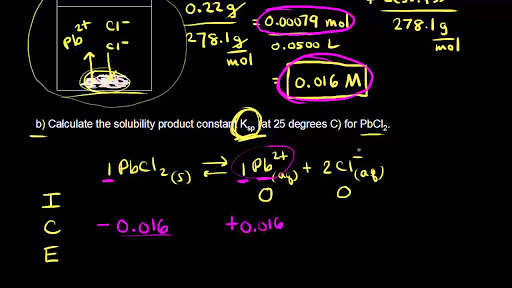 Pb²⁺ Cl⁻
Cl⁻
0.22 g
278.1 g
mol
= 0.00079 mol
0.0500 L
= 0.016 M
278.1 g
mol
b) Calculate the solubility product constant Ksp (at 25 degrees C) for PbCl₂.
1 PbCl₂ (s) ⇌ 1 Pb²⁺ (aq) + 2 Cl⁻ (aq)
I 0 0
C - 0.016 + 0.016
E